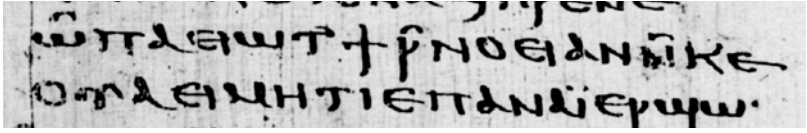 ⲱ̂ⲡⲁⲉⲓⲱⲧ` ϯⲣ̄ⲛⲟⲉⲓⲁⲛⲛ̄ⲕⲉ
ⲟⲩⲁⲉⲓⲙⲏⲧⲓⲉⲡⲁⲛⲁⲓ̈ⲉⲣϣⲱ·